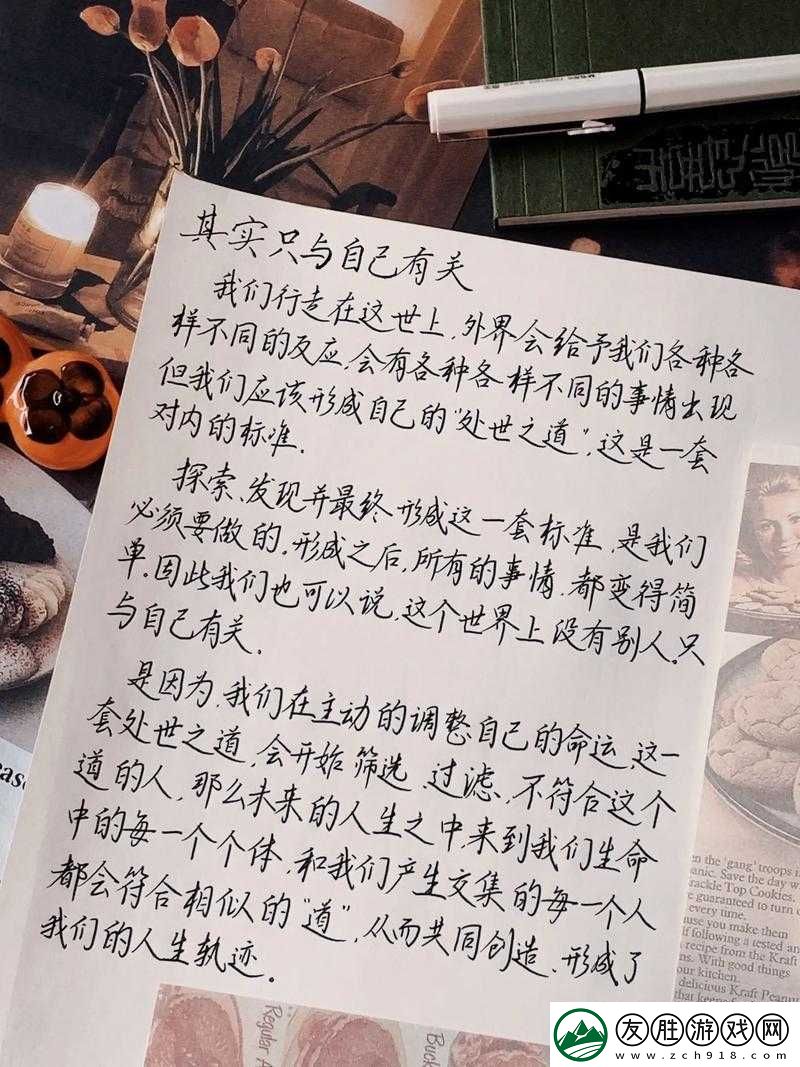 其实只与自己有关
我们行走在这世上,外界会给予我们各种各
样不同的反应,会有各种各样不同的事情出现
但我们应该形成自己的“处世之道”,这是一套
对内的标准.
探索、发现并最终形成这一套标准,是我们
必须要做的.形成之后,所有的事情.都变得简
单.因此我们也可以说,这个世界上没有别人.只
与自己有关.
是因为,我们在主动的调整自己的命运,这一
套处世之道,会开始筛选、过滤,不符合这个
道的人,那么未来的人生之中,来到我们生命
中的每一个个体,和我们产生交集的每一个人
都会符合相似的“道”,从而共同创造、形成了
我们的人生轨迹.
the 'gang' troops i
anic. Save the day w
rackle Top Cookies.
guaranteed to turn
every time.
use you make them
following a tested and
recipe from the Kraft
s. With good things
our kitchen.
delicious Kraft Peanu
that keep
Regular
Buck
友胜游戏网
www.zch918.com